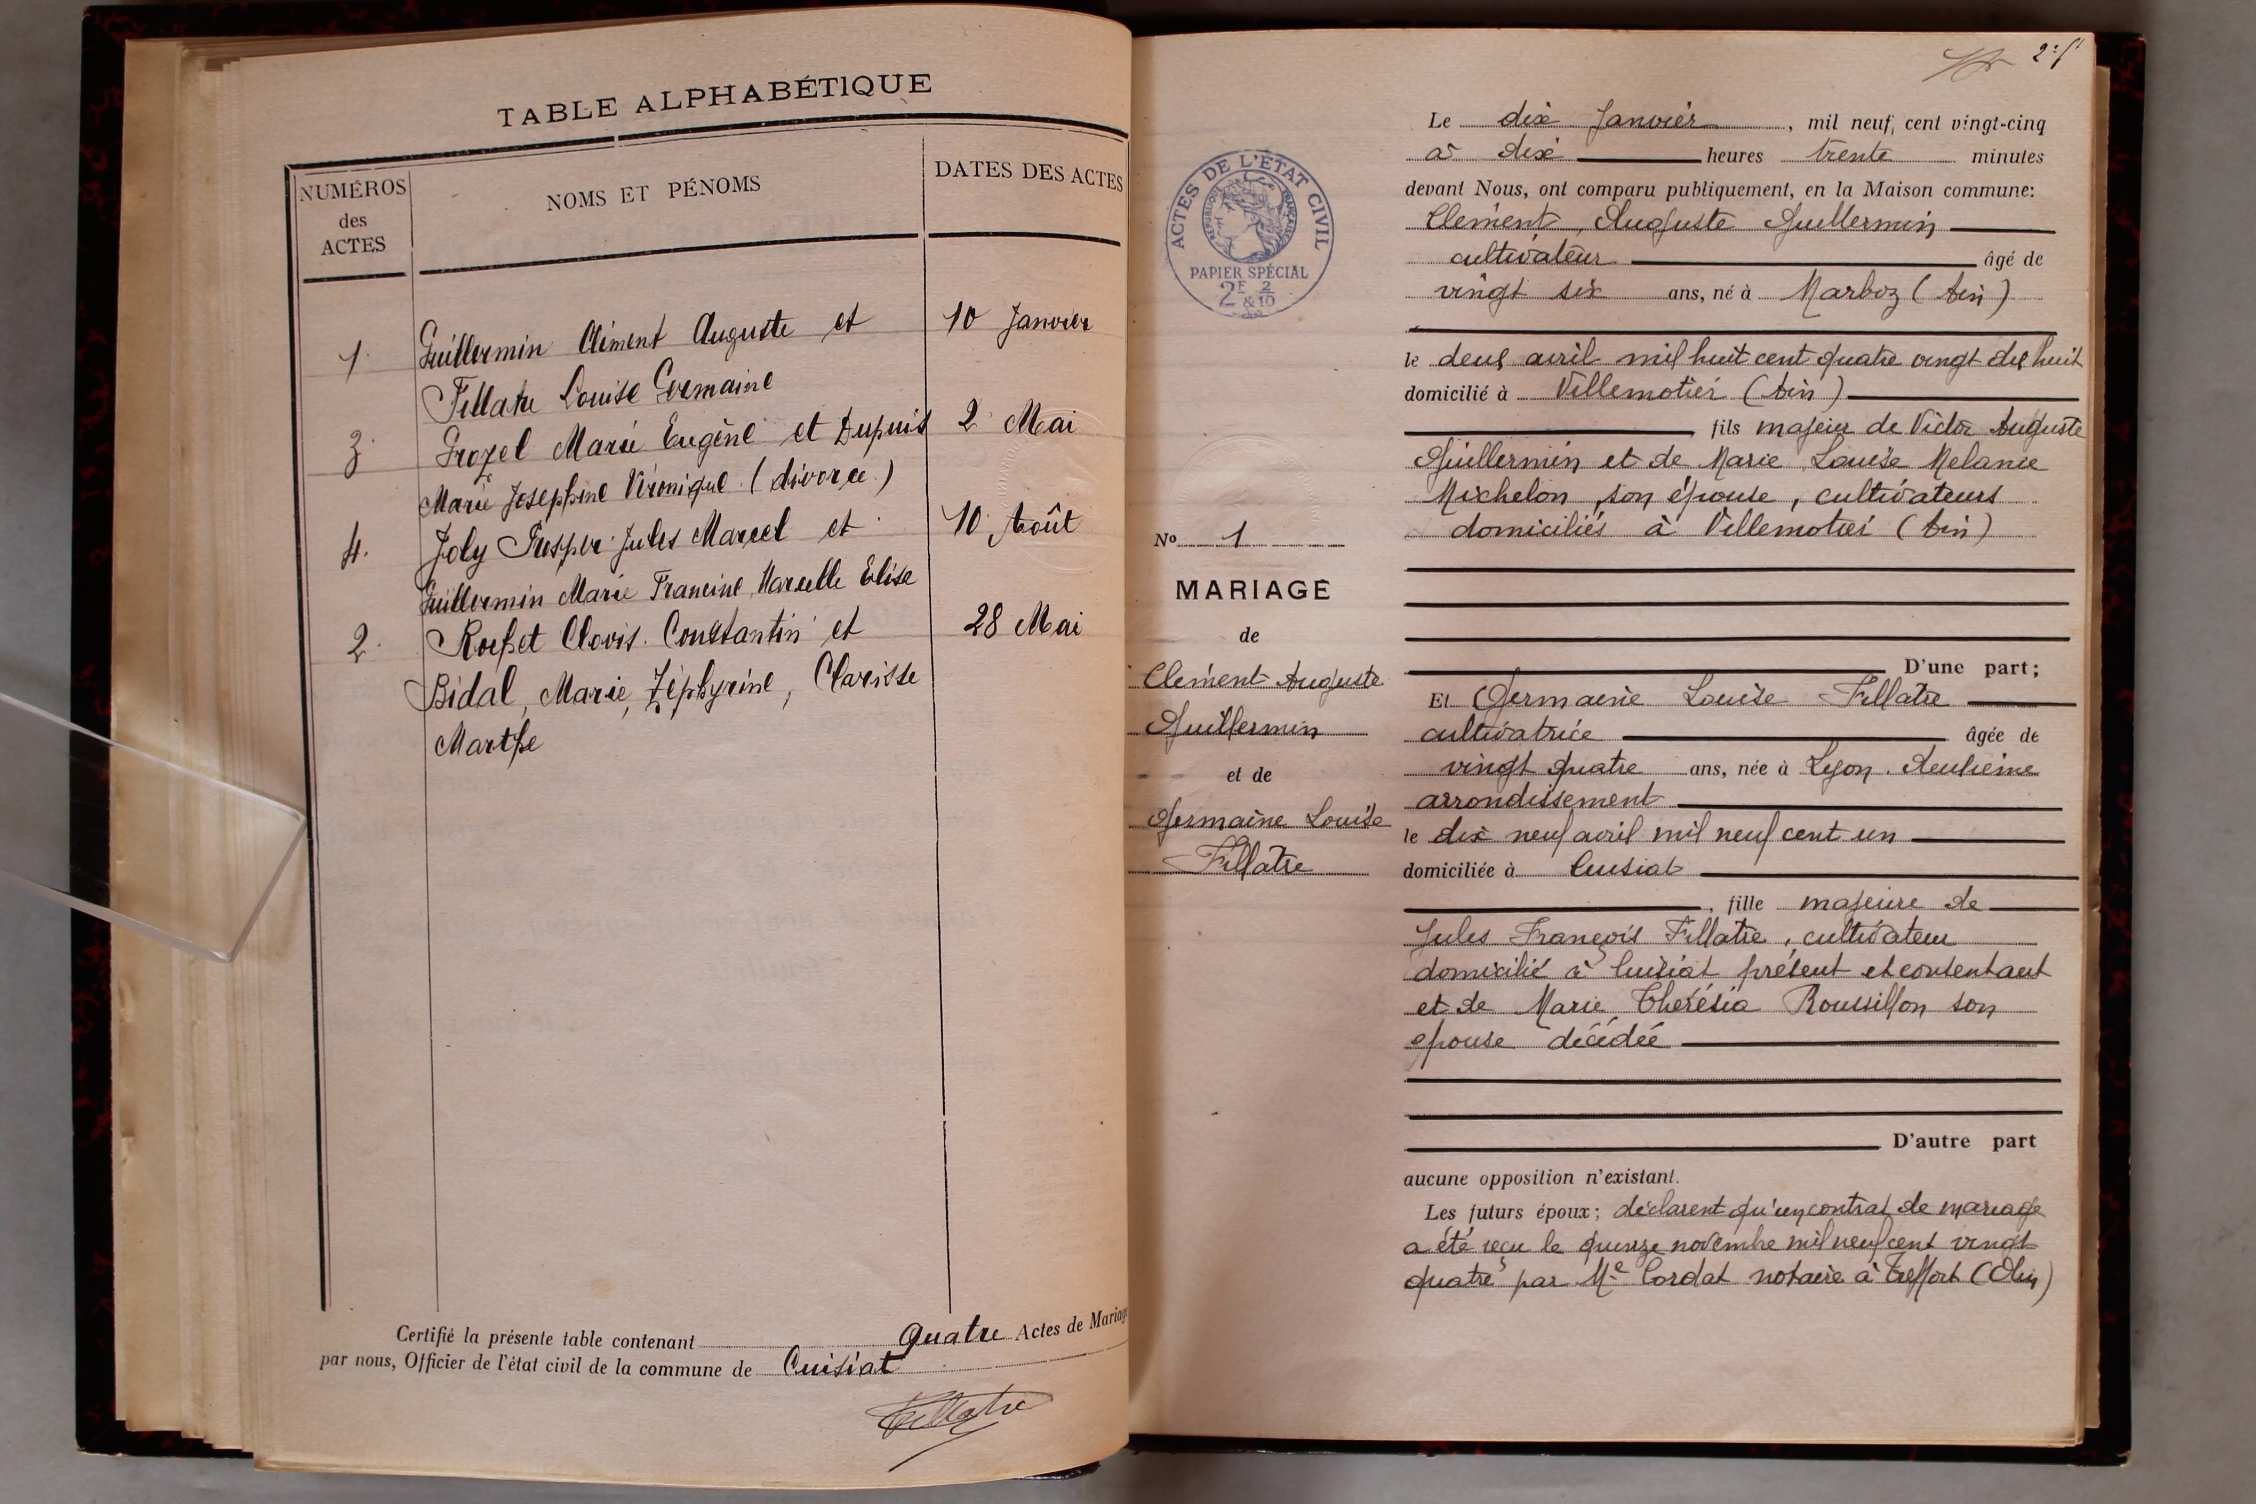 TABLE ALPHABÉTIQUE
NUMÉROS
des
ACTES
NOMS ET PÉNOMS
DATES DES ACTES
1. Guillermin Clément Auguste et 10 Janvier
Fillatre Louise Germaine
3. Frozel Marie Eugène et Dupuis 2 Mai
Marie Josephine Véronique (divorce)
4. Joly Prosper Jules Marcel et 10 Août
Guillermin Marie Francine Marcelle Elise
2. Clovis Constantin et 28 Mai
Bidal, Marie, Zéphyrine, Clarisse
Marthe
Certifié la présente table contenant quatre Actes de Mariage
par nous, Officier de l'état civil de la commune de Cuisiat
Fillatre
ACTES DE L'ÉTAT CIVIL
RÉPUBLIQUE FRANÇAISE
PAPIER SPÉCIAL
2F & 2/10
No 1
MARIAGE
de
Clément Auguste
Guillermin
et de
Germaine Louise
Fillatre
Le dix Janvier, mil neuf cent vingt-cinq
à dix heures trente minutes
devant Nous, ont comparu publiquement, en la Maison commune:
Clément, Auguste Guillermin
cultivateur âgé de
vingt six ans, né à Marboz (Ain)
le deux avril mil huit cent quatre vingt dix huit
domicilié à Villemotier (Ain)
, fils majeur de Victor Auguste
Guillermin et de Marie Louise Melanie
Michelon, son épouse, cultivateurs
domiciliés à Villemotier (Ain)
D'une part;
Et Germaine Louise Fillatre
cultivatrice âgée de
vingt quatre ans, née à Lyon. deuxième
arrondissement
le dix neuf avril mil neuf cent un
domiciliée à Cuisiat
, fille majeure de
Jules François Fillatre, cultivateur
domicilié à Cuisiat présent et consentant
et de Marie Thérésia Roussillon son
épouse décédée
D'autre part
aucune opposition n'existant.
Les futurs époux; déclarent qu'un contrat de mariage
a été reçu le quinze novembre mil neuf cent vingt
quatre par Me Cordat notaire à Treffort (Ain)